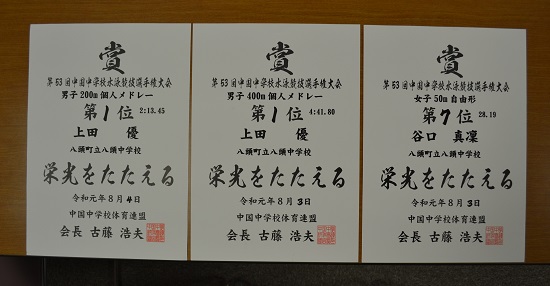 賞
第53回中国中学校水泳競技選手権大会
男子200m個人メドレー
第1位 2:13.45
上田 優
八頭町立八頭中学校
栄光をたたえる
令和元年8月4日
中国中学校体育連盟
会長 古藤 浩夫
賞
第53回中国中学校水泳競技選手権大会
男子400m個人メドレー
第1位 4:41.80
上田 優
八頭町立八頭中学校
栄光をたたえる
令和元年8月3日
中国中学校体育連盟
会長 古藤 浩夫
賞
第53回中国中学校水泳競技選手権大会
女子50m自由形
第7位 28.19
谷口 真凜
八頭町立八頭中学校
栄光をたたえる
令和元年8月3日
中国中学校体育連盟
会長 古藤 浩夫